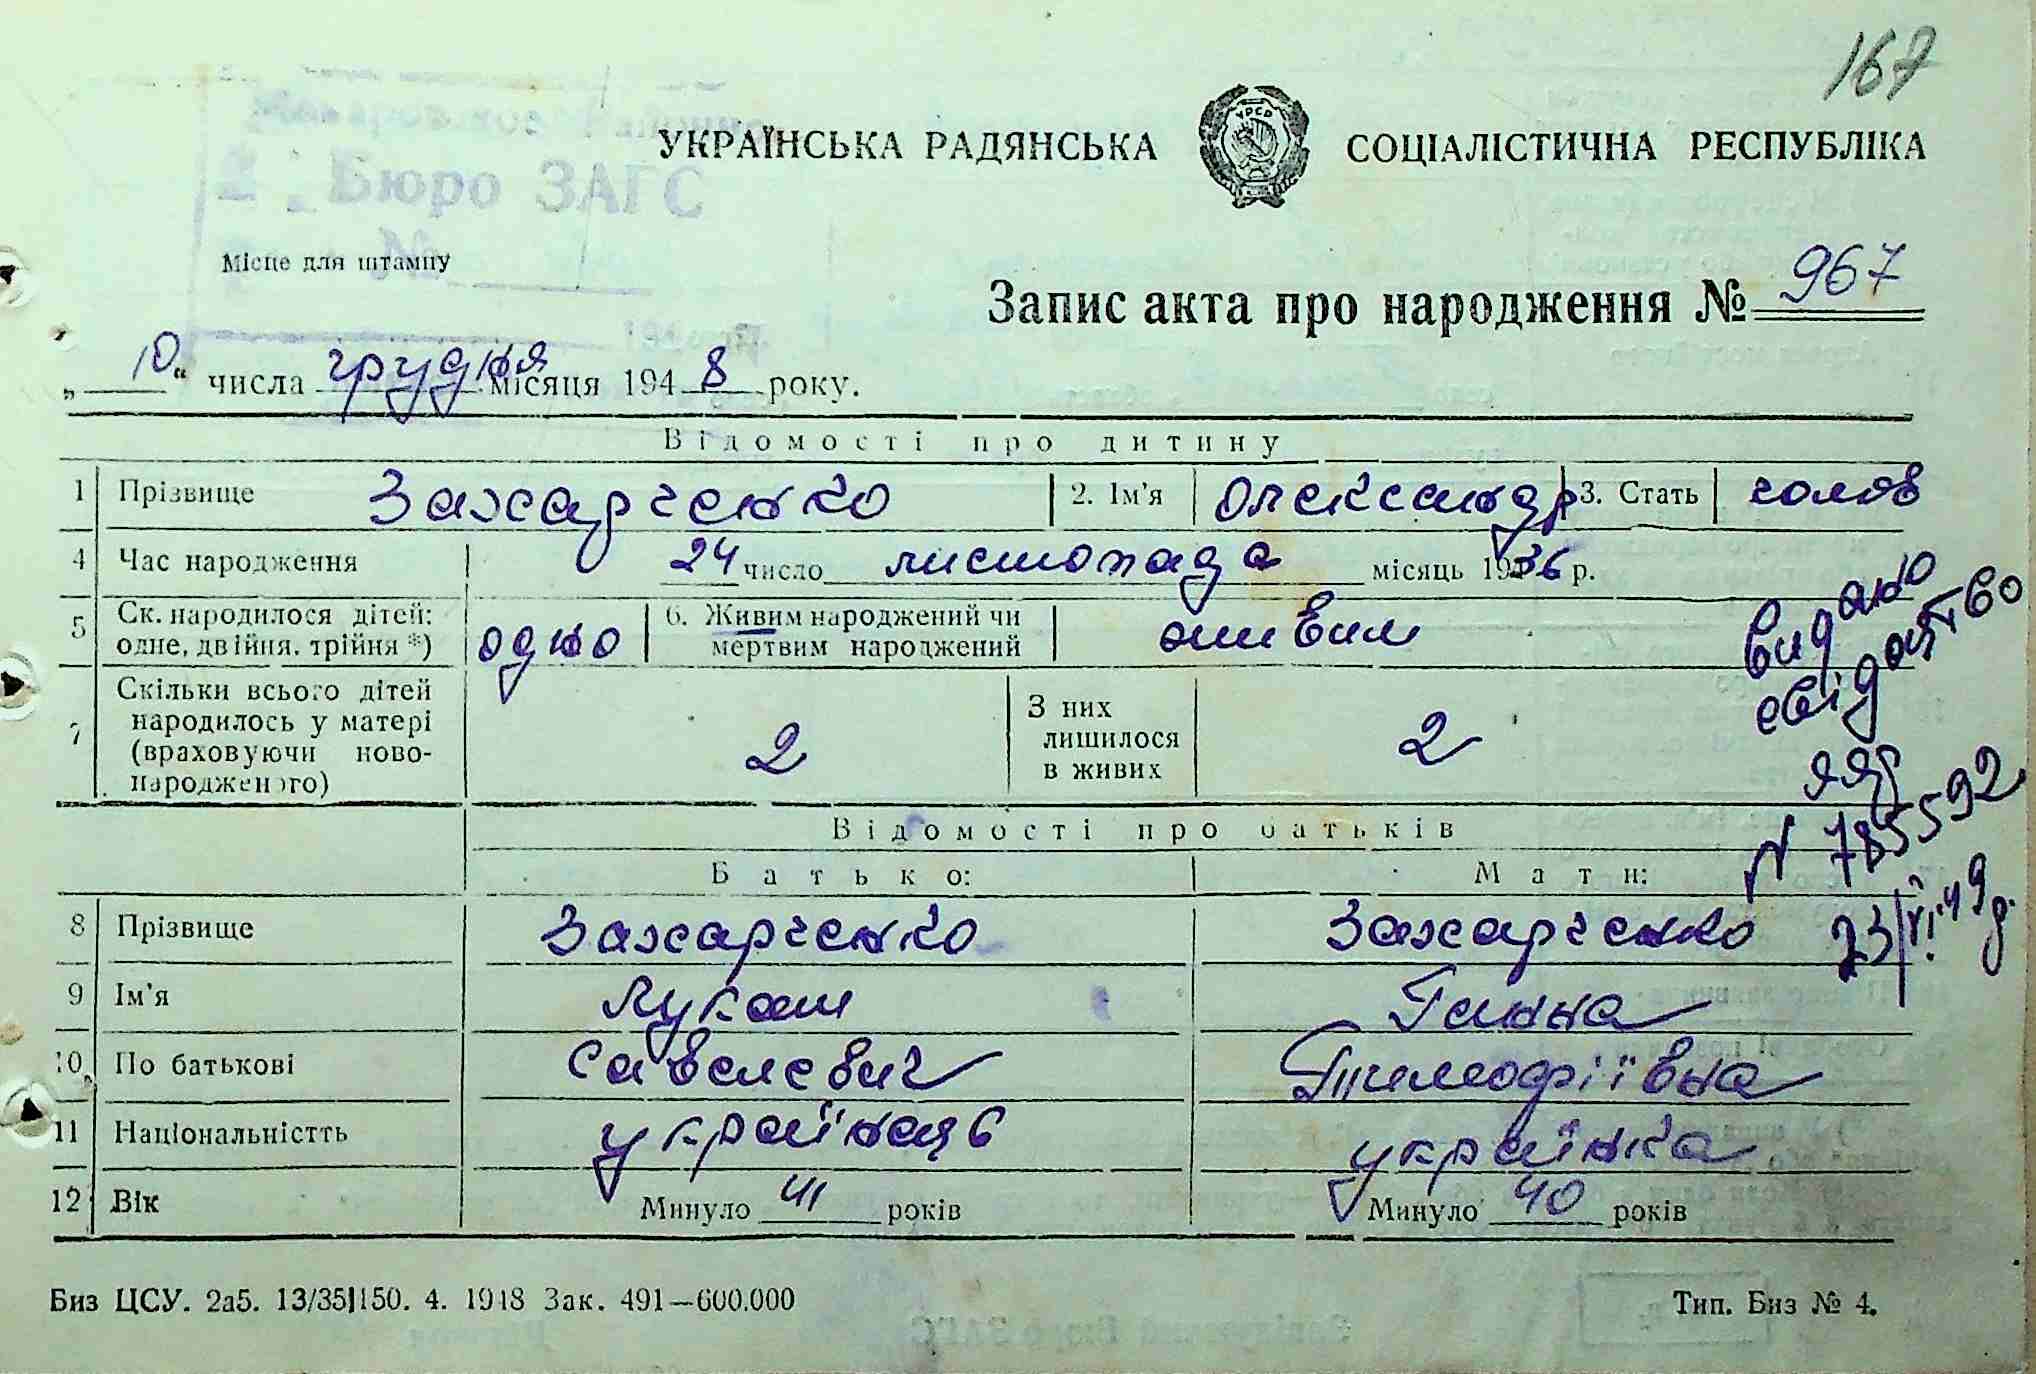 167
Макаровское Районное
Бюро ЗАГС
№
УКРАЇНСЬКА РАДЯНСЬКА СОЦІАЛІСТИЧНА РЕСПУБЛІКА
УРСР
Місце для штампу
Запис акта про народження № 967
„ 10 “ числа грудня місяця 194 8 року.
Відомості про дитину
1 Прізвище Захарченко 2. Ім'я Олександр 3. Стать чолов
4 Час народження 24 число листопада місяць 1936 р.
5 Ск. народилося дітей: одне, двійня, трійня *) одно 6. Живим народжений чи мертвим народжений живим
7 Скільки всього дітей народилось у матері (враховуючи ново-народженого) 2 З них лишилося в живих 2
видано
свідоцтво
ЯЯ
№ 785592
23/VI.49 р.
Відомості про батьків
Батько: Мати:
8 Прізвище Захарченко Захарченко
9 Ім'я Лукаш Ганна
10 По батькові Савелевич Тимофіївна
11 Національністть українець українка
12 Вік Минуло 41 років Минуло 40 років
Биз ЦСУ. 2а5. 13/35|150. 4. 1948 Зак. 491—600.000 Тип. Биз № 4.